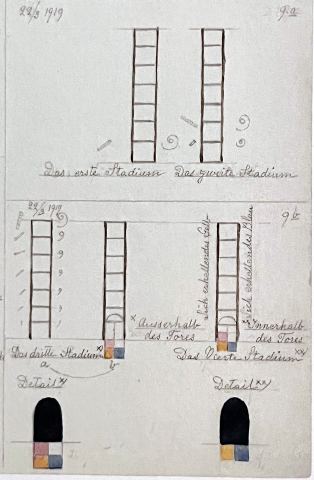 22/3 1919
9.a
Das erste Stadium Das zweite Stadium
22/3 1919
9 b
Sich erhellendes Gelb
Sich erhellendes Blau
x Ausserhalb
des Tores
Innerhalb
des Tores
Das dritte Stadium
Das Vierte Stadium xx
a b
Detail x
Detail xx